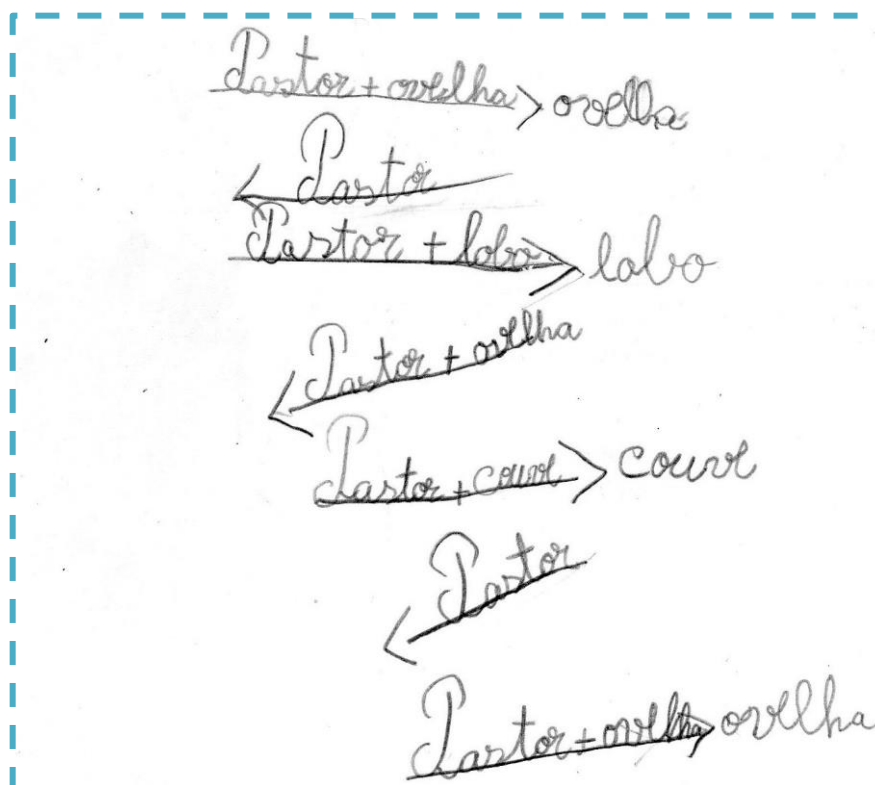 Pastor + ovelha > ovelha
Pastor
Pastor + lobo > lobo
Pastor + ovelha
Pastor + couve > couve
Pastor
Pastor + ovelha > ovelha